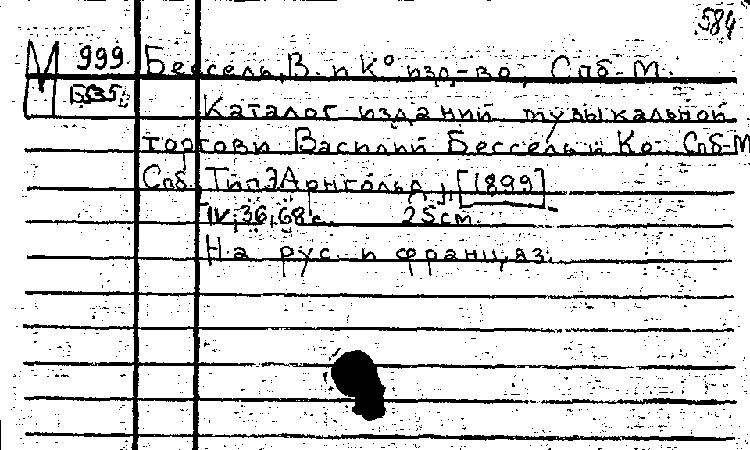 584
М 999 Бессель, В. и К° изд-во, Спб-М.
Б535
Каталог изданий музыкальной
торговли Василий Бессель и Ко. Спб-М
Спб, Тип. Э Арнгольд, [1899]
IV, 36, 68 с. 25 см.
На рус. и француз.